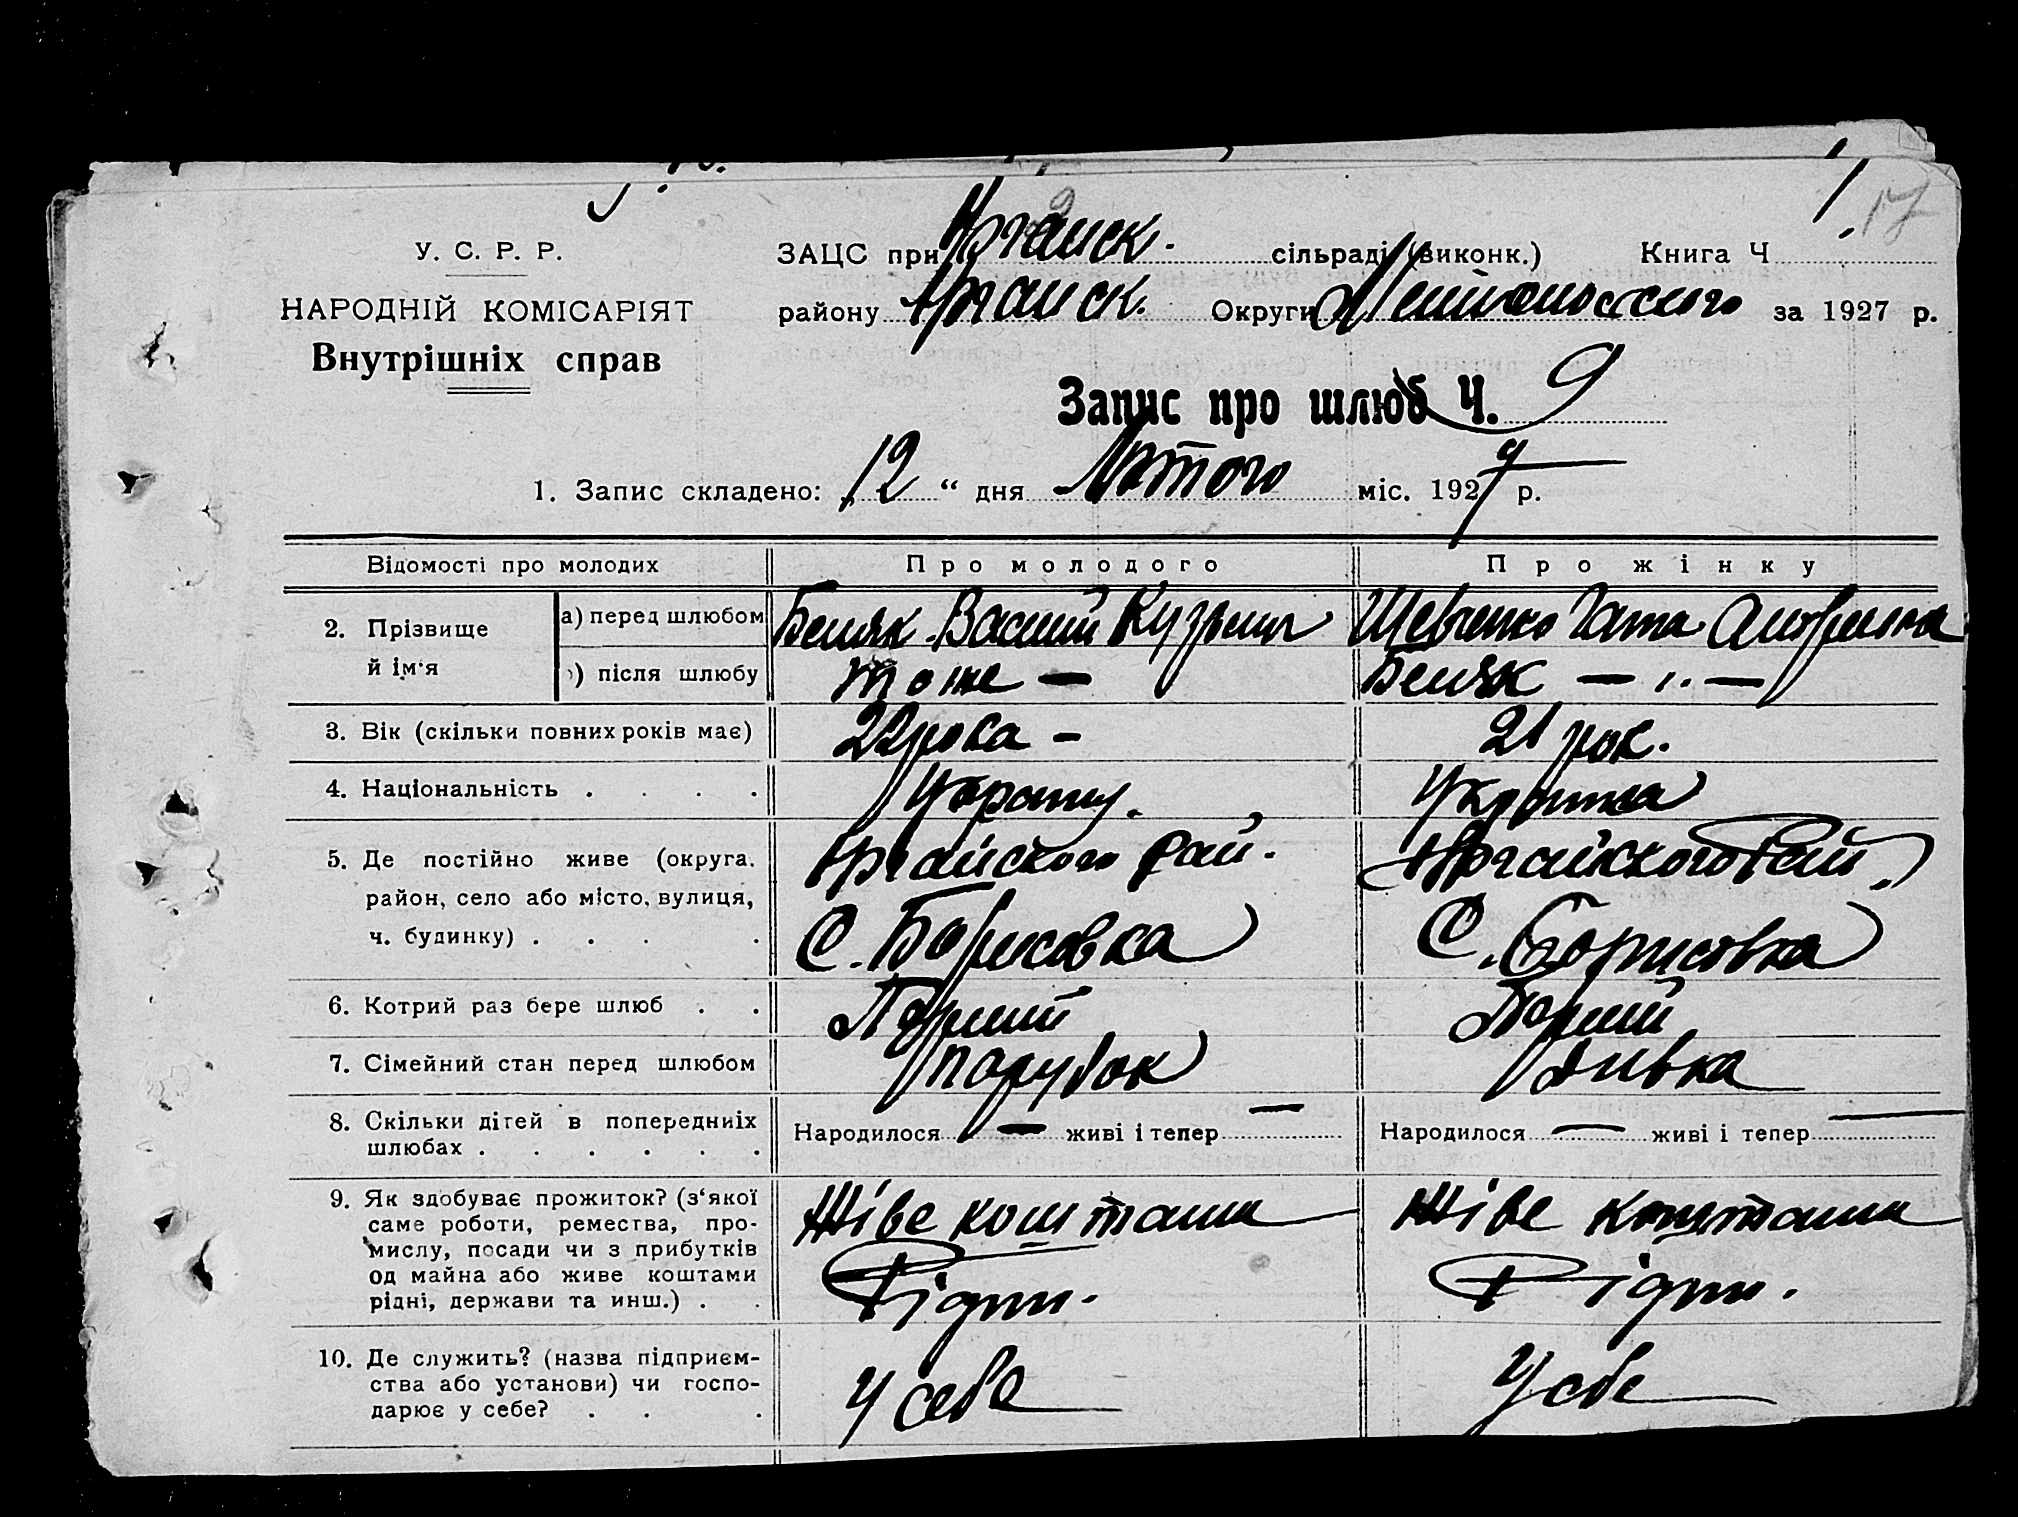 17
У. С. Р. Р.
НАРОДНІЙ КОМІСАРІЯТ
Внутрішніх справ
ЗАЦС при сільраді (виконк.) Книга Ч 1.
району Округи за 1927 р.
Запис про шлюб Ч. 9
1. Запис складено: „12“ дня Лютого міс. 1927 р.
Відомості про молодих Про молодого Про жінку
2. Прізвище й ім'я
а) перед шлюбом Василий Кузьмич Шевченко Гата
б) після шлюбу тоже — — „ —
3. Вік (скільки повних років має) 22 рока - 21 рок.
4. Національність . . . .
5. Де постійно живе (округа, рай. рай.
район, село або місто, вулиця, С. Борисовка С. Борисовка
ч. будинку) . . . .
6. Котрий раз бере шлюб . . Перший Перший
7. Сімейний стан перед шлюбом парубок дивка
8. Скільки дітей в попередніх
шлюбах . . . . . . Народилося — живі і тепер — Народилося — живі і тепер —
9. Як здобуває прожиток? (з'якої Живе коштами Живе коштами
саме роботи, ремества, про-
мислу, посади чи з прибутків
од майна або живе коштами Рідни. Рідни.
рідні, держави та инш.) . .
10. Де служить? (назва підприєм-
ства або установи) чи госпо- У себе У себе
дарює у себе? . . .